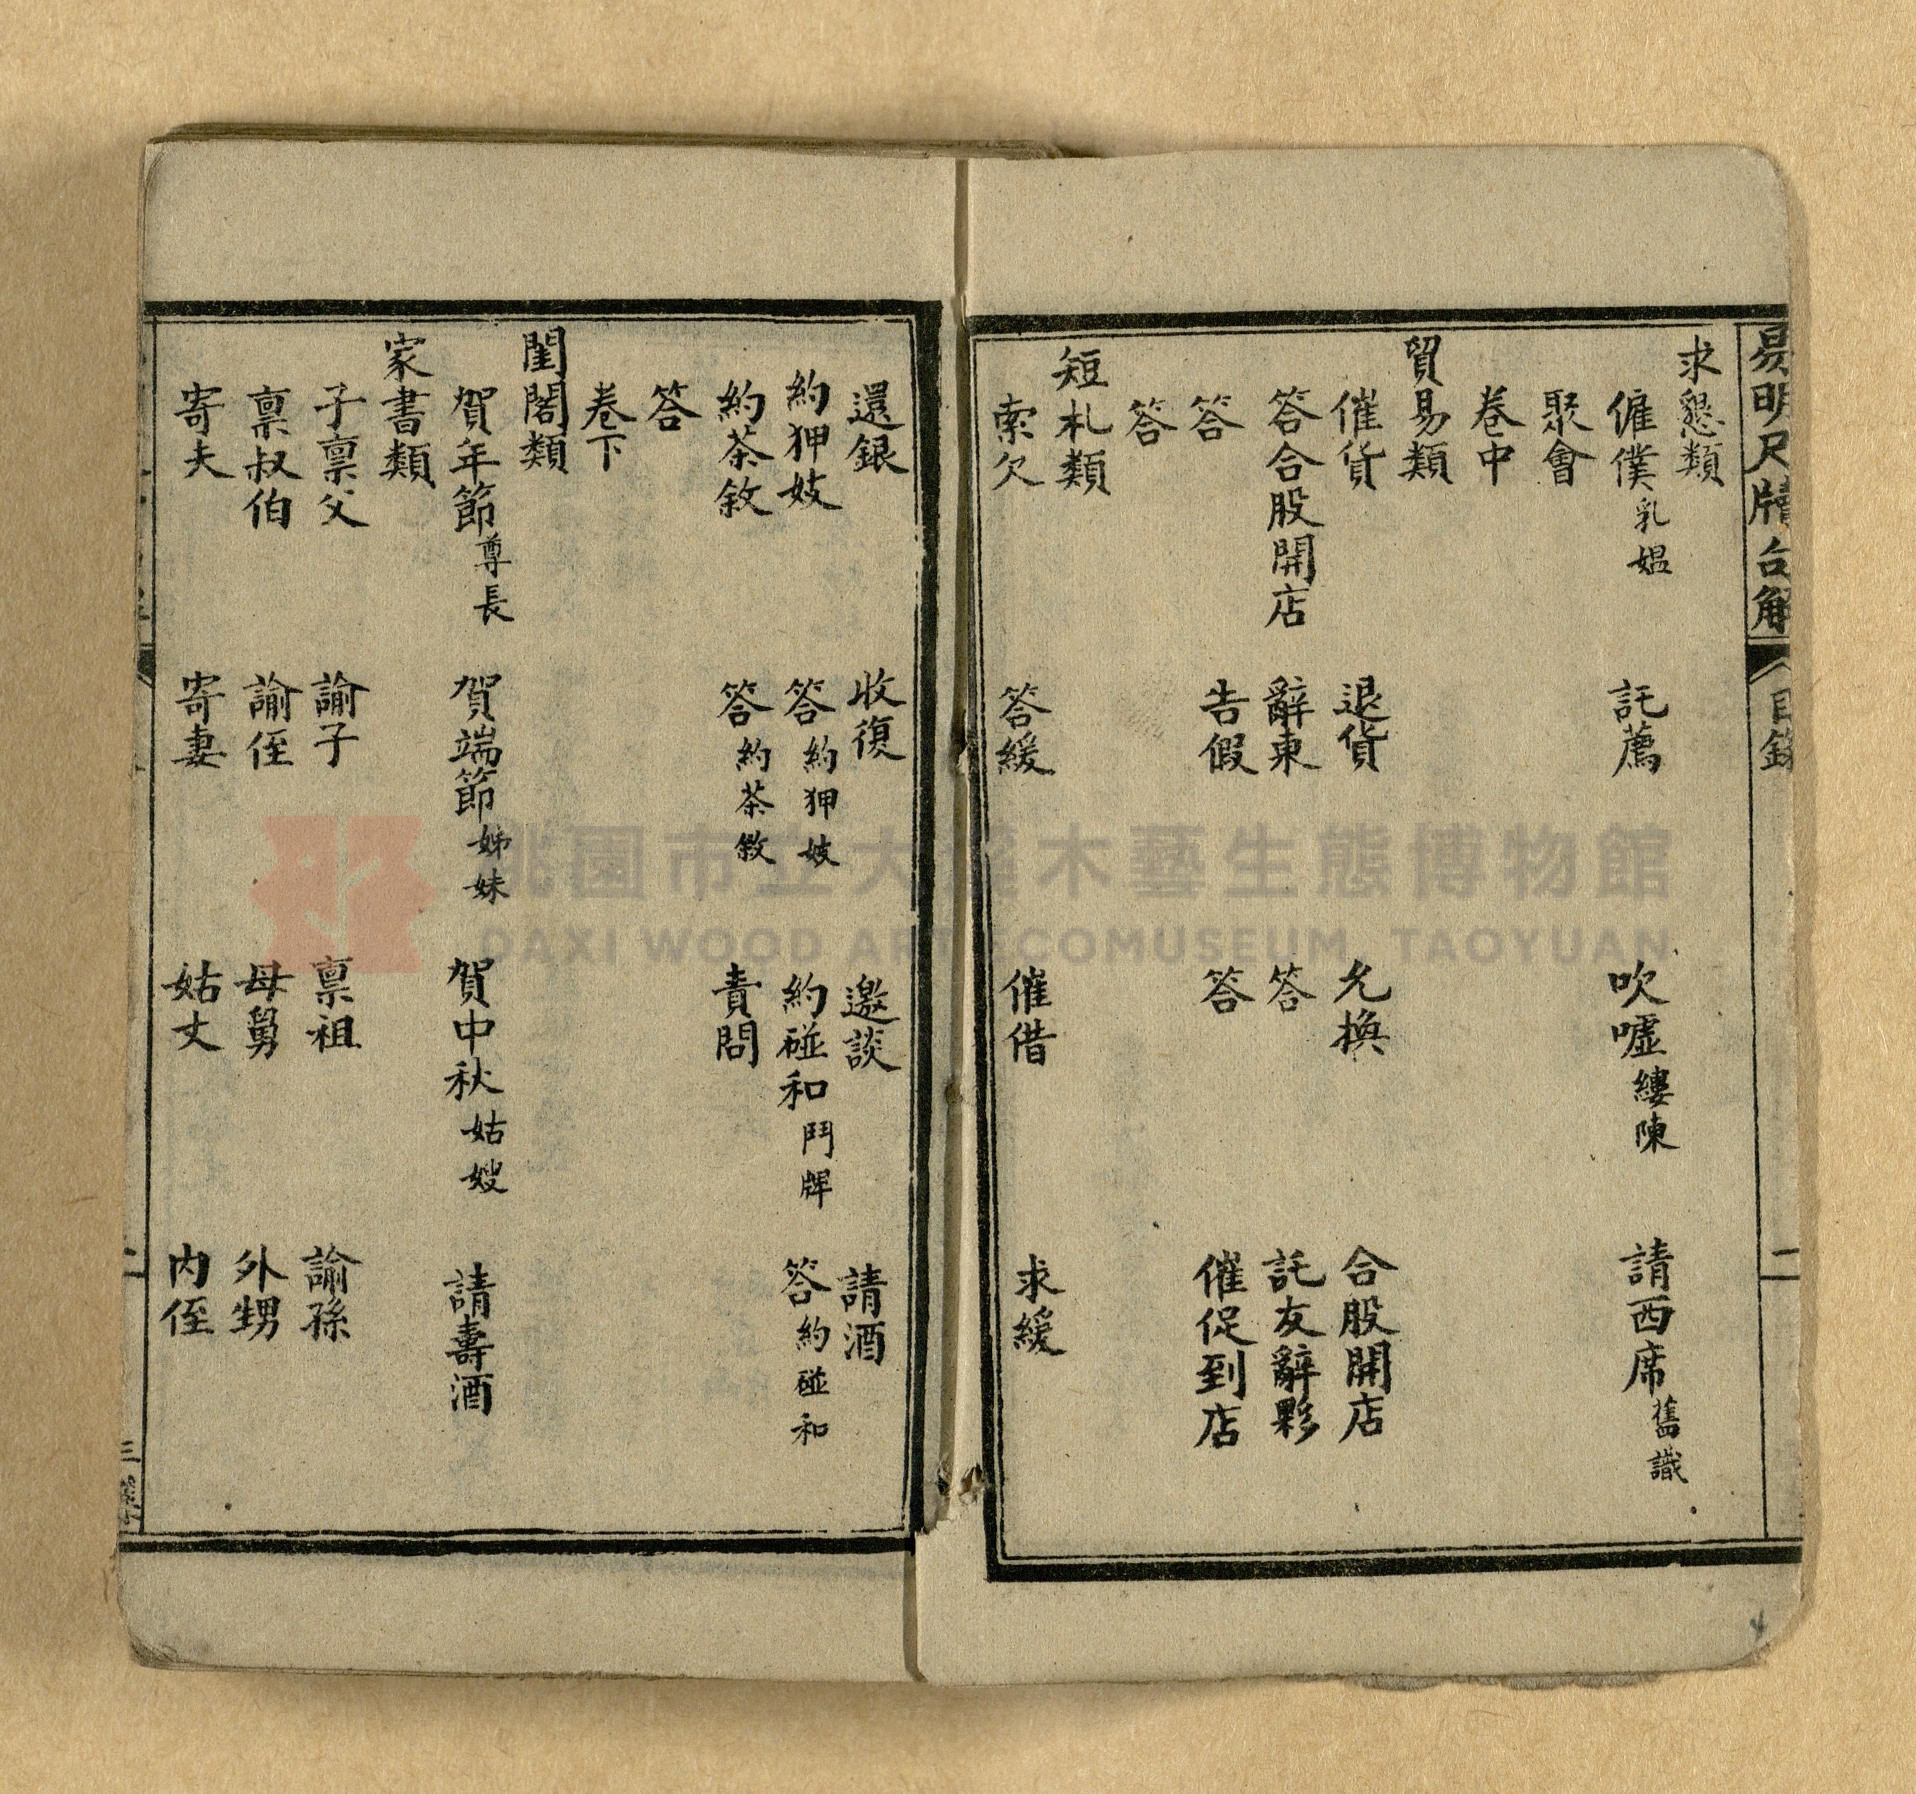 易明尺牘合解 目錄 二
求懇類
僱僕乳媼 託薦 吹噓縷陳 請西席舊識
聚會
卷中
貿易類
催貨 退貨 允換 合股開店
答合股開店 辭東 答 託友辭夥
答 告假 答 催促到店
答
短札類
索欠 答緩 催借 求緩
還銀 收復 邀談 請酒
約狎妓 答約狎妓 約碰和鬥牌 答約碰和
約茶敘 答約茶敘 責問
答
卷下
閨閣類
賀年節尊長 賀端節姊妹 賀中秋姑嫂 請壽酒
家書類
子稟父 諭子 稟祖 諭孫
稟叔伯 諭侄 母舅 外甥
寄夫 寄妻 姑丈 內侄
桃園市立大溪木藝生態博物館
DAXI WOOD ART ECOMUSEUM, TAOYUAN